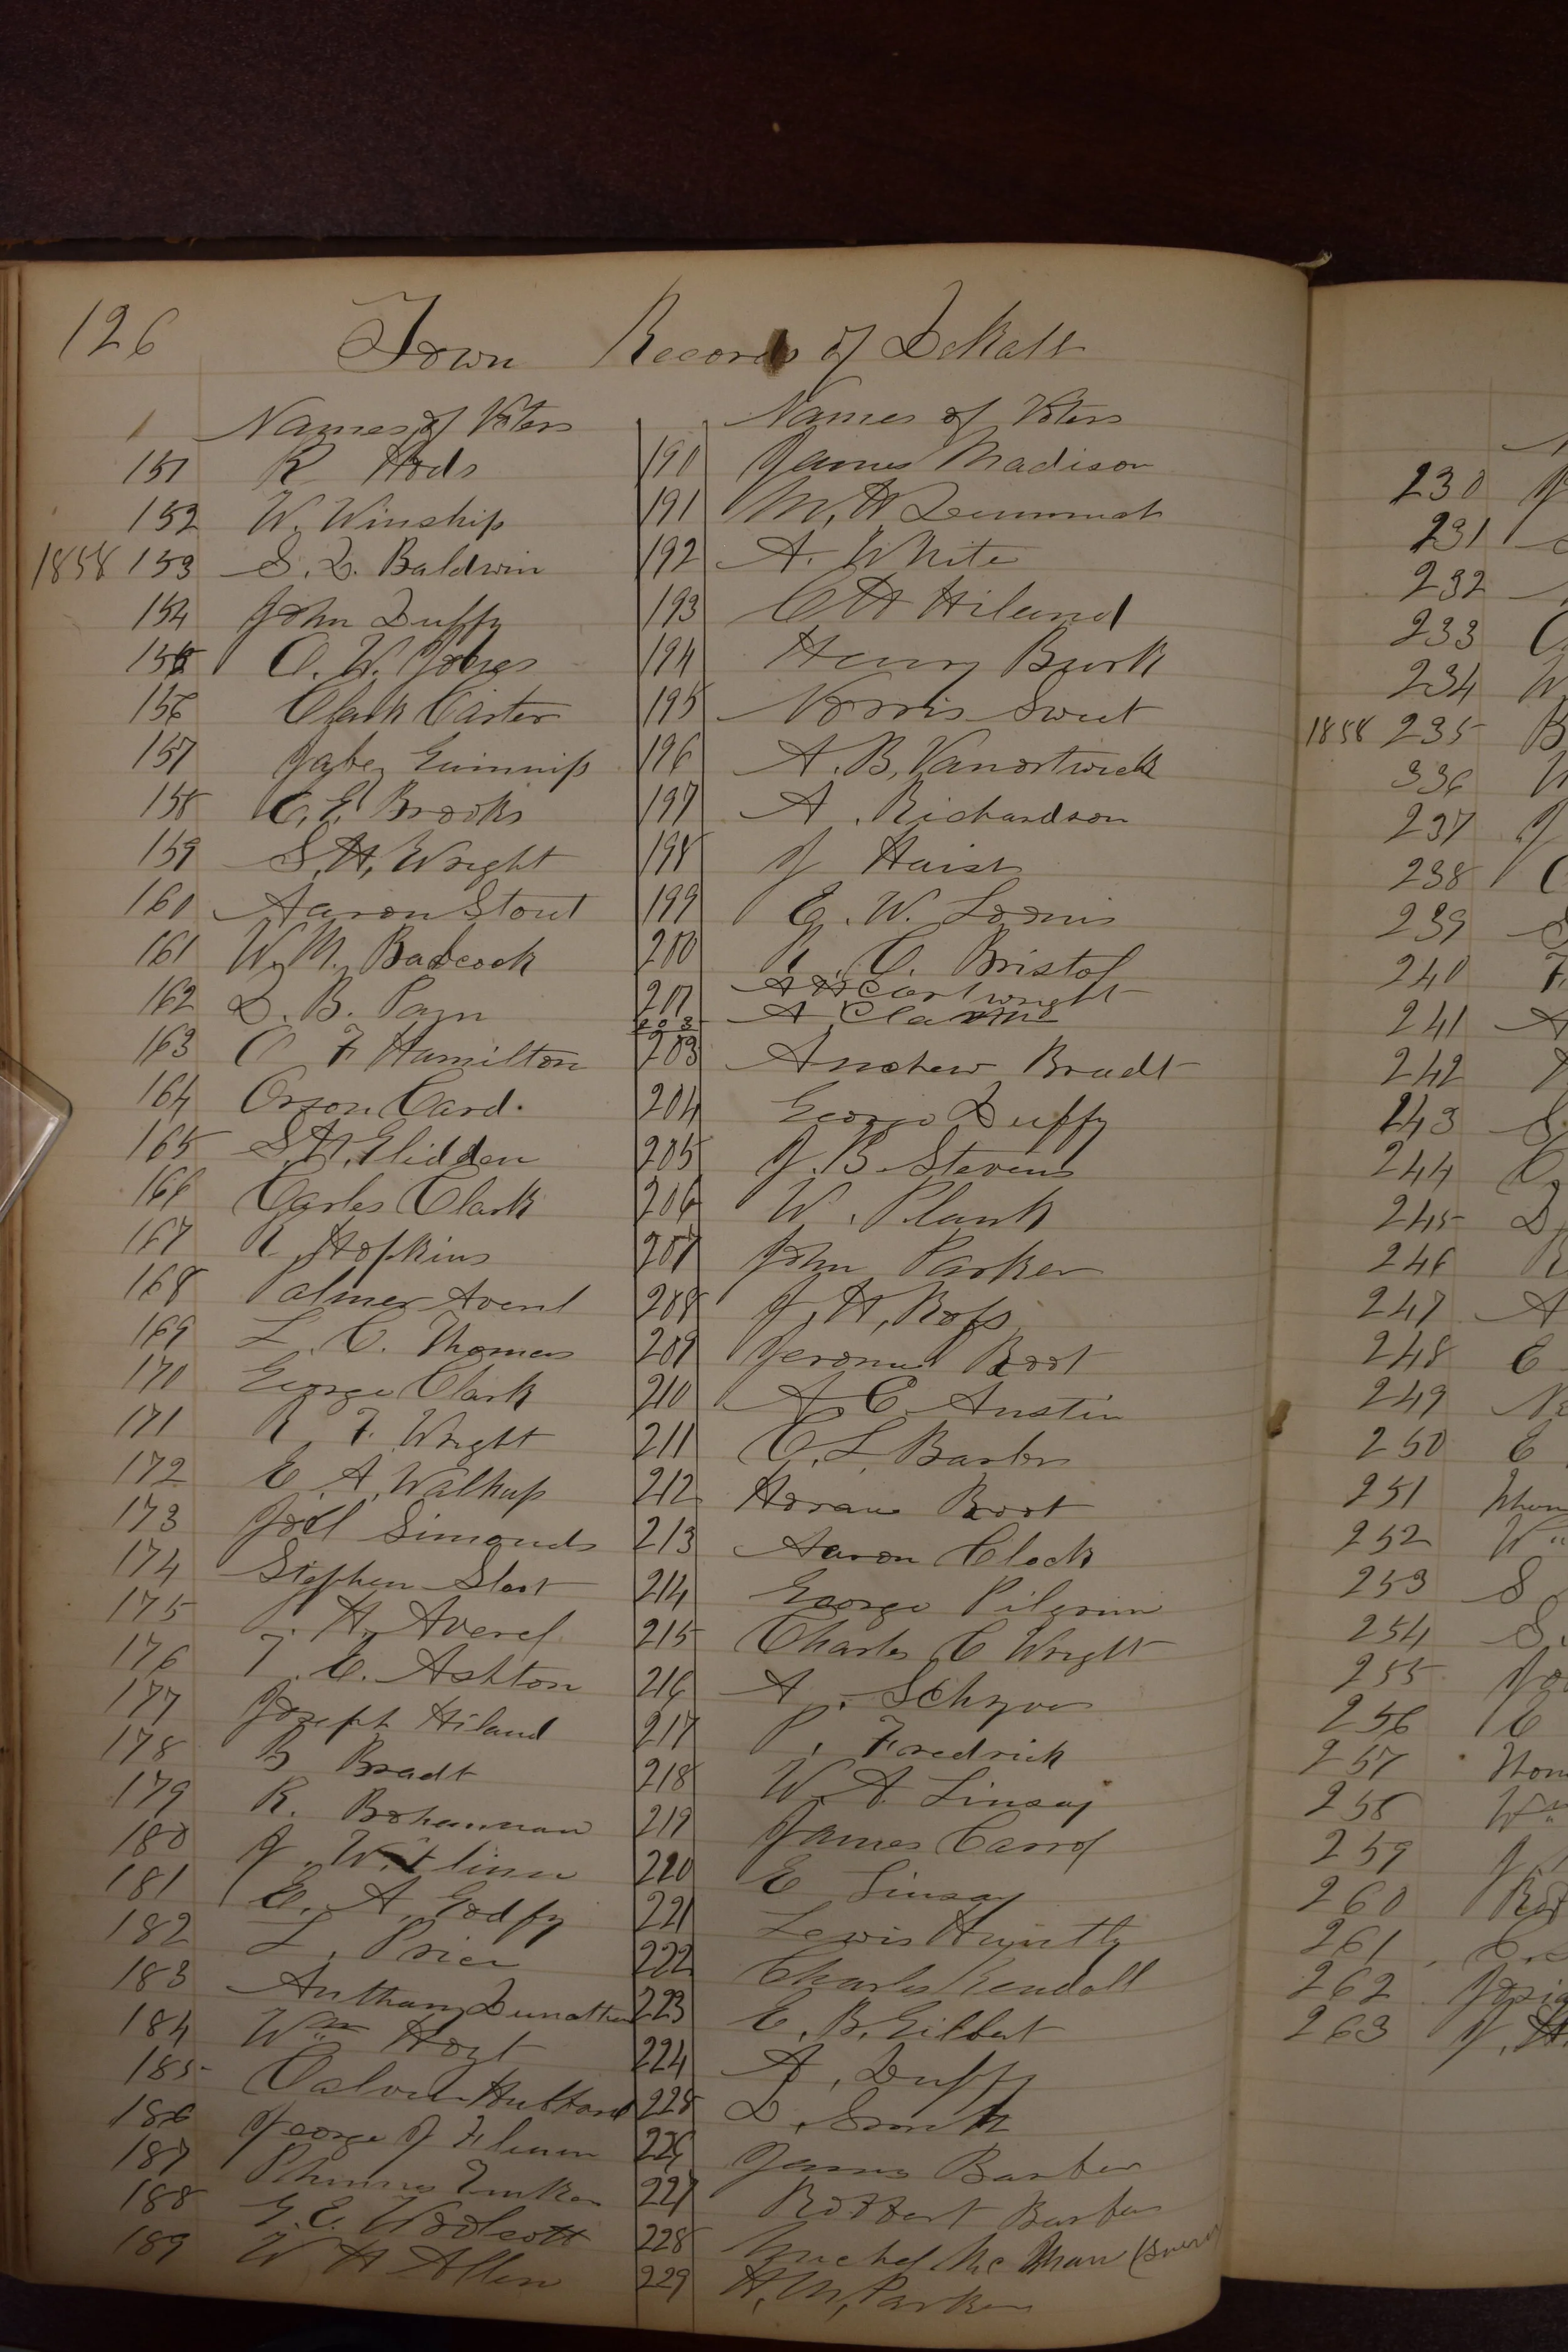 126 Town Records of DeKalb
Names of Voters Names of Voters
151 R Hods 190 James Madison
152 W. Winship 191 M, H
1858 153 S. D. Baldwin 192 A. White
154 John Duffy 193 C H Hiland
155 O. W. 194 Henry Burk
156 Clark Carter 195 Norris Sweet
157 196 A. B, Vanortwick
158 C, E Brooks 197 A. Richardson
159 S, H, Wright 198 J
160 Aaron Stout 199 E. W. Loomis
161 W. M. Badcock 200 R. C. Bristol
162 D. B. Pain 201 A H Cartwright
202 A
163 C F Hamilton 203 Andrew Bradt
164 Orson Card. 204 George Duffy
165 S. H. Glidden 205 J. B Stevens
166 Carles Clark 206 W. Plank
167 R, Hopkins 207 John Parker
168 Palmer Averel 208 J, H, Ross
169 L. C. Thomas 209 Root
170 George Clark 210 A. C. Austin
171 R. F. Wright 211 C. L. Barber
172 E. A. Walkup 212 Root
173 Joel Simonds 213 Aaron Clock
174 Stephen 214 George Pilgrim
175 H. Averel 215 Charles C Wright
176 T. C. Ashton 216 A.
177 Joseph Hiland 217 P, Fredrick
178 B Bradt 218 W. A. Linsay
179 R. Bohannan 219 James Carrol
180 J. 220 E Linsay
181 E. A. Godfy 221 Lewis Huntly
182 L. Price 222 Charles Kendall
183 223 E. B. Gilbert
184 Wm Hoyt 224 A, Duffy
185 Calvin Hubbard 225 D. Smith
186 George J 226 James Barber
187 227 Robbert Barber
188 G. E. Woolcott 228 Michel Mc
189 W H Allen 229 H, M, Parker
230 J
231
232
233 C
234 W
1858 235 B
336
237 J
238 C
239 S
240 F
241 A
242
243 S
244 C
245 D
246 R
247 A
248 E
249
250 E
251
252 W
253 S
254 S.
255
256 C
257
258 Wm
259 J
260
261
262
263 J, H